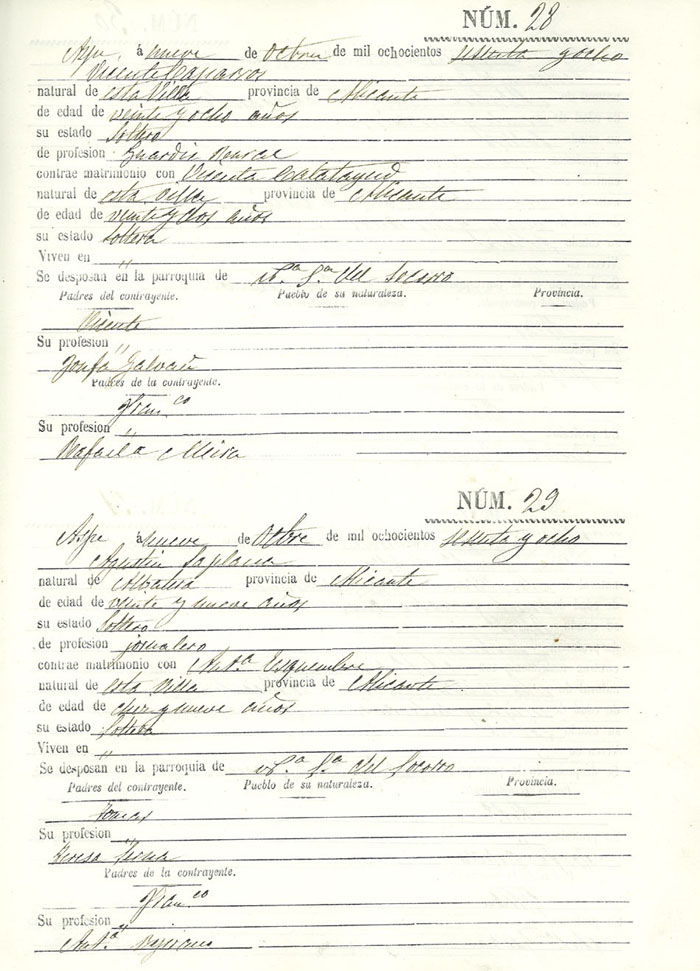 NÚM. 28
Aspe, á nueve de Octubre de mil ochocientos sesenta y ocho
Vicente Caparros
natural de esta Villa provincia de Alicante
de edad de veinte y ocho años
su estado Soltero
de profesion Guardia Rural
contrae matrimonio con Vicenta Calatayud
natural de esta Villa provincia de Alicante
de edad de veinte y dos años
su estado Soltera
Viven en "
Se desposan en la parroquia de N.ª S.ª del Socorro
Padres del contrayente. Pueblo de su naturaleza. Provincia.
Vicente
Su profesion "
Josefa Galvañ
Padres de la contrayente.
Fran.co
Su profesion "
Rafaela Mira
NÚM. 29
Aspe á nueve de Octbre de mil ochocientos sesenta y ocho
Agustin Saplana
natural de Albatera provincia de Alicante
de edad de veinte y nueve años
su estado Soltero
de profesion jornalero
contrae matrimonio con Ant.ª Esquembre
natural de esta Villa provincia de Alicante
de edad de diez y nueve años
su estado Soltera
Viven en "
Se desposan en la parroquia de N.ª S.ª del Socorro
Padres del contrayente. Pueblo de su naturaleza. Provincia.
Tomas
Su profesion "
Teresa
Padres de la contrayente.
Fran.co
Su profesion "
Ant.ª